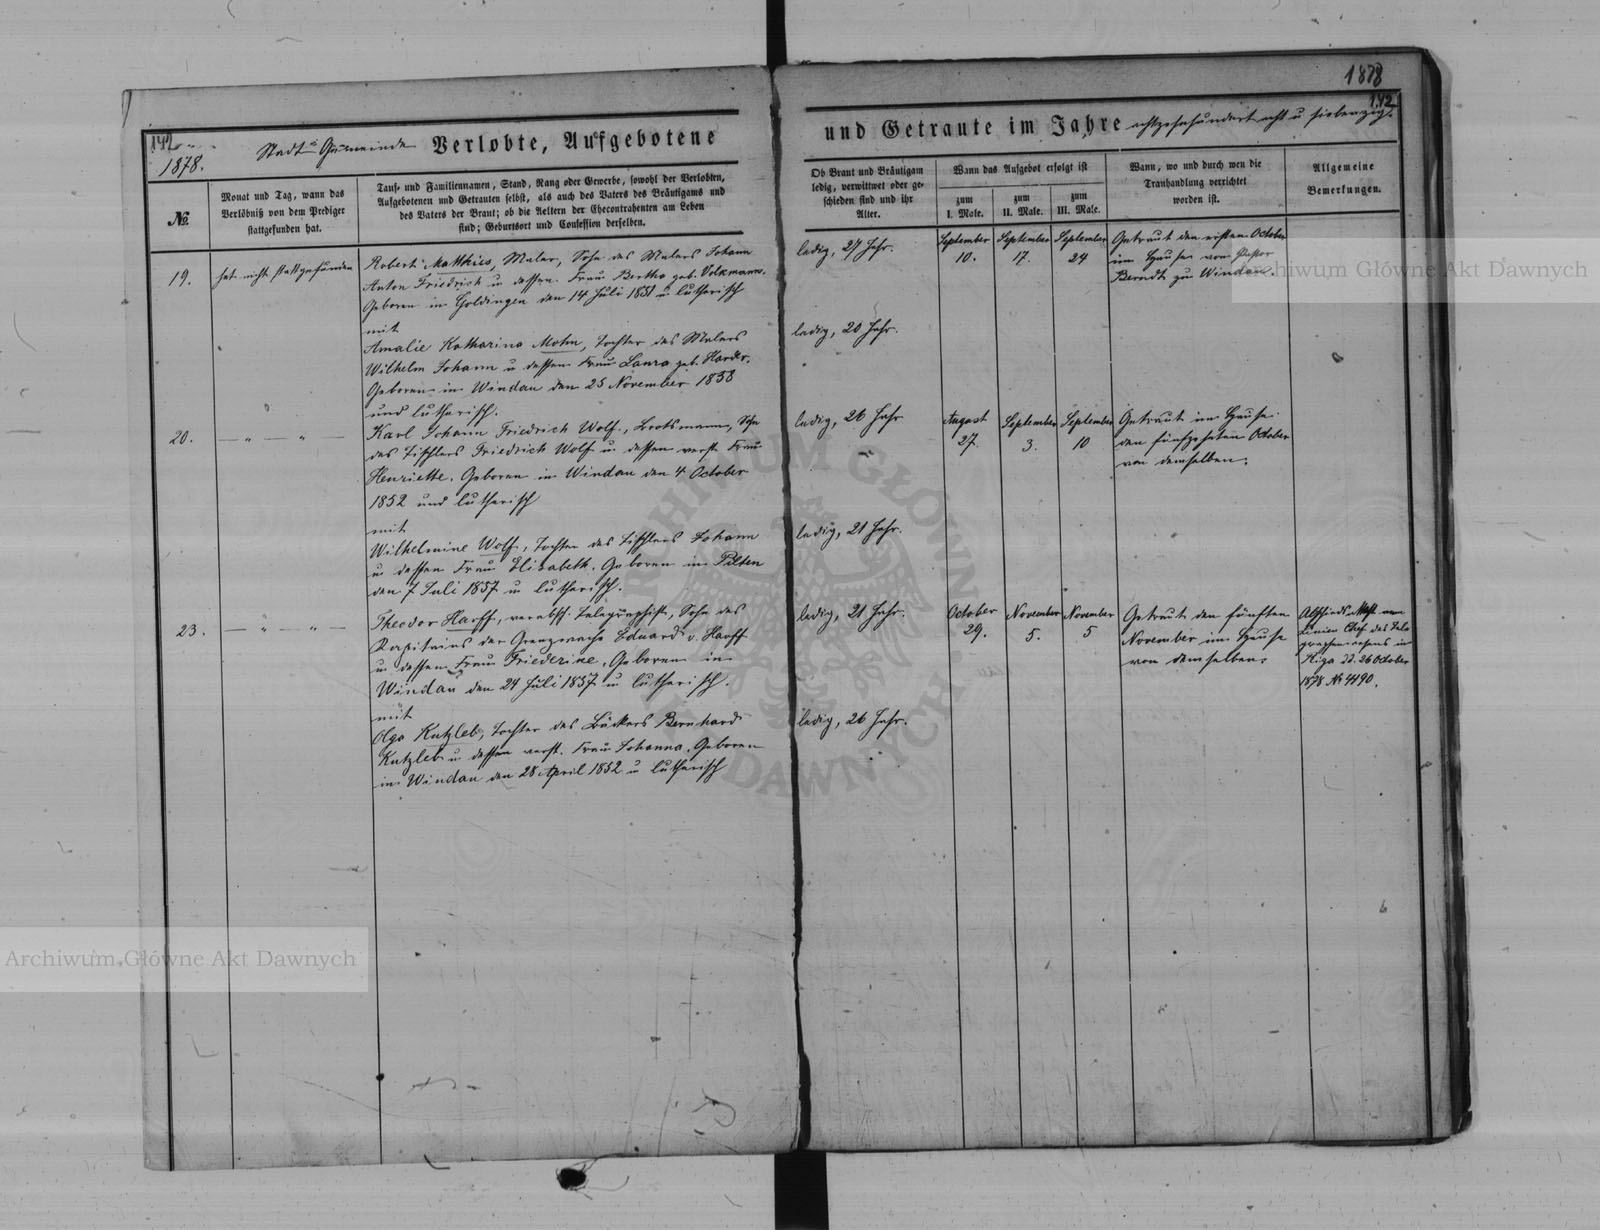 1878
142
142
Stadt-Gemeinde Verlobte, Aufgebotene
und Getraute im Jahre achtzehnhundert acht u siebenzig.
1878.
№
Monat und Tag, wann das
Verlöbniß von dem Prediger
stattgefunden hat.
Tauf- und Familiennamen, Stand, Rang oder Gewerbe, sowohl der Verlobten,
Aufgebotenen und Getrauten selbst, als auch des Vaters des Bräutigams und
des Vaters der Braut; ob die Aeltern der Ehecontrahenten am Leben
sind; Geburtsort und Confession derselben.
Ob Braut und Bräutigam
ledig, verwittwet oder ge-
schieden sind und ihr
Alter.
Wann das Aufgebot erfolgt ist
zum
I. Male.
zum
II. Male.
zum
III. Male.
Wann, wo und durch wen die
Trauhandlung verrichtet
worden ist.
Allgemeine
Bemerkungen.
19.
hat nicht stattgefunden
Robert Matthies, Maler, Sohn des Malers Johann
Anton Friedrich u dessen Frau Bertha geb. Volkmann.
Geboren in Goldingen den 14 Juli 1851 u lutherisch
mit
Amalie Katharina Mohn, Tochter des Malers
Wilhelm Johann u dessen Frau Laura geb. Harder.
Geboren in Windau den 25 November 1858
und lutherisch.
ledig, 27 Jahr.
ledig, 20 Jahr.
September
10.
September
17.
September
24
Getraut den ersten October
im Hause von Pastor
Berndt zu Windau.
20.
— " — " —
Karl Johann Friedrich Wolf, Bootsmann, Sohn
des Tischlers Friedrich Wolf u dessen verst. Frau
Henriette. Geboren in Windau den 4 October
1852 und lutherisch
mit
Wilhelmine Wolf, Tochter des Tischlers Johann
u dessen Frau Elisabeth. Geboren in Pilten
den 7 Juli 1857 u lutherisch.
ledig, 26 Jahr
ledig, 21 Jahr.
August
27.
September
3.
September
10
Getraut im Hause
den fünfzehnten October
von demselben.
23.
— " — " —
Theodor Harff, verabsch. Telegraphist, Sohn des
Kapitains der Grenzwache Eduard v. Harff
u dessen Frau Friederike, Geboren in
Windau den 24 Juli 1857 u lutherisch.
mit
Olga Kutzleb, Tochter des Bäckers Bernhard
Kutzleb u dessen verst. Frau Johanna. Geboren
in Windau den 28 April 1852 u lutherisch
ledig, 21 Jahr.
ledig, 26 Jahr.
October
29.
November
5.
November
5
Getraut den fünften
November im Hause
von demselben.
Abschieds Attest vom
Linien Chef des Tele
graphenwesens in
Riga dd. 26 October
1878 № 4490.
Archiwum Główne Akt Dawnych
Archiwum Główne Akt Dawnych
ARCHIWUM GŁÓWNE AKT DAWNYCH